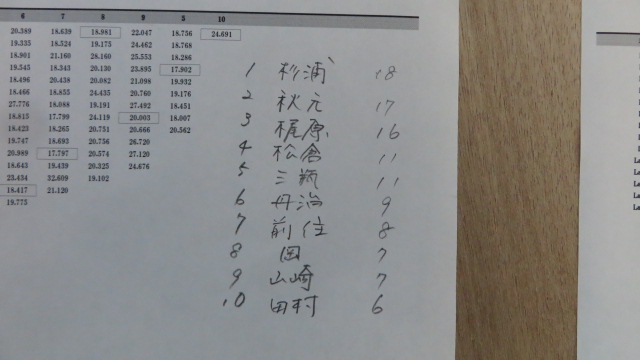 6 7 8 9 5 10
20.389 18.639 18.981 22.047 18.756 24.691
19.335 18.524 19.175 24.462 18.768
18.901 21.160 28.160 25.553 18.286
19.545 18.343 20.130 23.895 17.902
18.496 20.438 20.082 21.098 19.932
18.466 18.855 24.435 20.760 19.176
27.776 18.088 19.191 27.492 18.451
18.815 17.799 24.119 20.003 18.007
18.423 18.265 20.751 20.666 20.562
19.747 18.693 20.756 26.720
20.989 17.797 20.574 27.120
18.643 19.439 20.325 24.676
23.434 32.609 19.102
18.417 21.120
19.775
1 杉浦 18
2 秋元 17
3 梶原 16
4 松倉 11
5 三瓶 11
6 丹治 9
7 前住 8
8 岡 7
9 山崎 7
10 田村 6